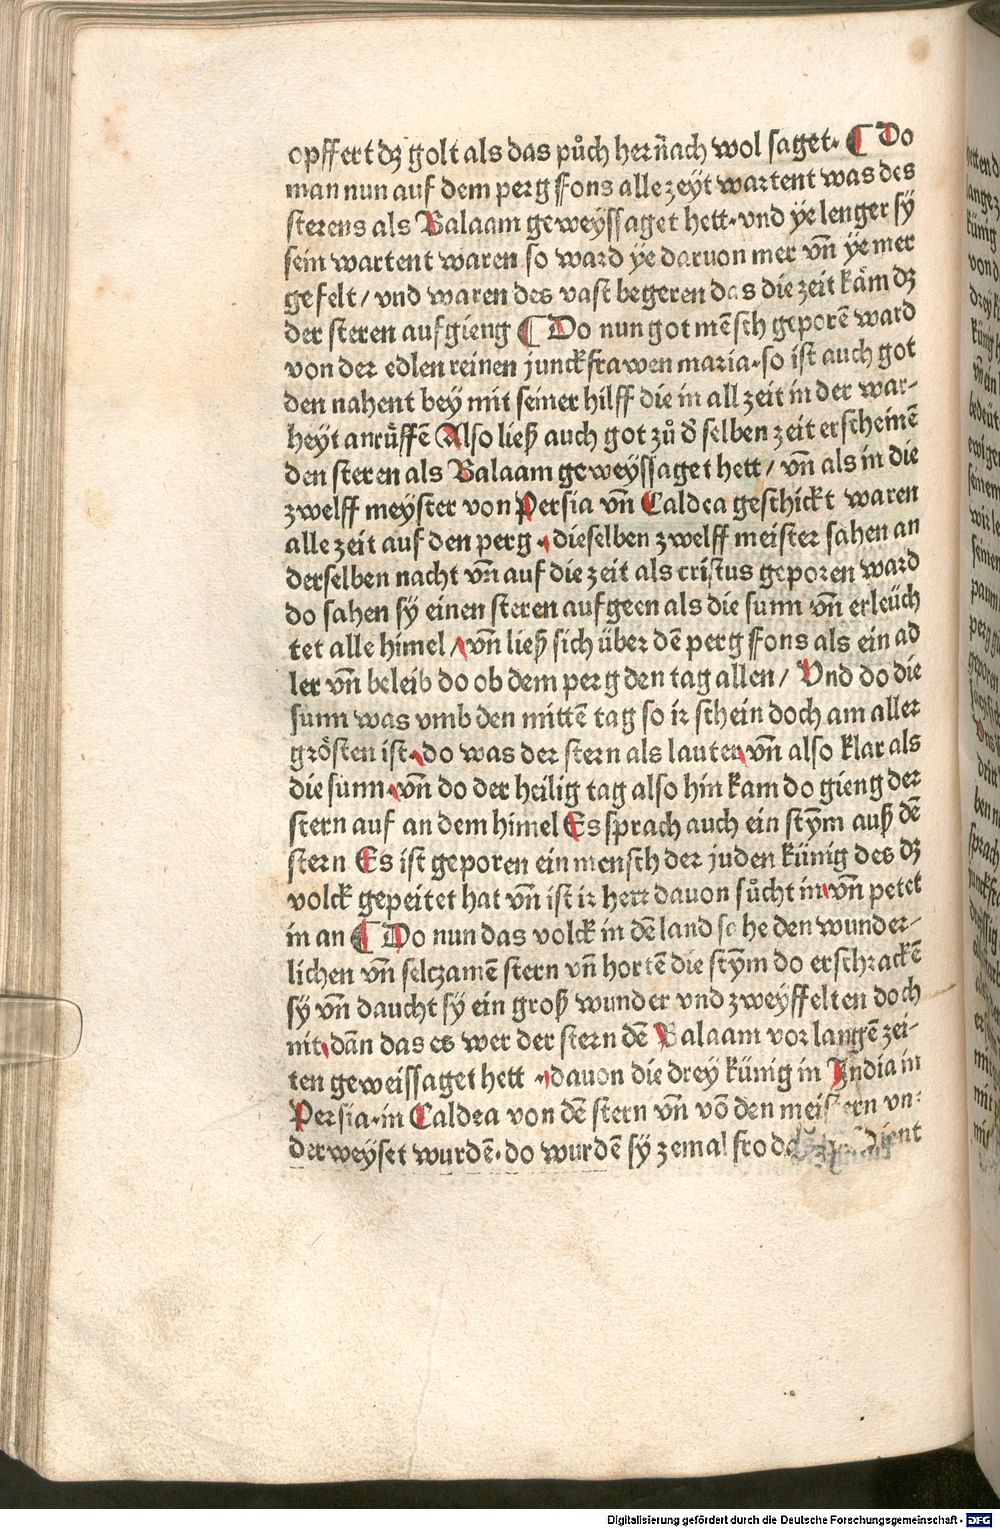 opffert dz golt als das půch herñach wol saget. ¶ Do
man nun auf dem perg ffons alle zeyt wartent was des
sterens als Balaam geweyssaget hett. vnd ÿe lenger sÿ
sein wartent waren so ward ÿe daruon mer vn̄ ÿe mer
gefelt / vnd waren des vast begeren das die zeit kām dz
der steren aufgieng ¶ Do nun got mēsch geporē ward
von der edlen reinen junckfrawen maria. so ist auch got
den nahent beÿ mit seiner hilff die in all zeit in der war-
heÿt anrůffē Also ließ auch got zů d̄ selben zeit erscheinē
den steren als Balaam geweyssaget hett / vn̄ als in die
zwelff meyster von Persia vn̄ Caldea geschickt waren
alle zeit auf den perg . dieselben zwelff meister sahen an
derselben nacht vn̄ auf die zeit als cristus geporen ward
do sahen sÿ einen steren aufgeen als die sunn vn̄ erleüch
tet alle himel / vn̄ ließ sich über dē perg ffons als ein ad
ler vn̄ beleib do ob dem perg den tag allen / Vnd do die
sunn was vmb den mittē tag so ir schein doch am aller
grösten ist. do was der stern als lauter vn̄ also klar als
die sunn. vn̄ do der heilig tag also hin kam do gieng der
stern auf an dem himel Es sprach auch ein stÿm auß dē
stern Es ist geporen ein mensch der juden künig des dz
volck gepeitet hat vn̄ ist ir herr dauon sůcht in vn̄ petet
in an ¶ Do nun das volck in dē land sahe den wunder-
lichen vn̄ selczamē stern vn̄ hortē die stÿm do erschrackē
sÿ vn̄ daucht sÿ ein groß wunder vnd zweÿffelten doch
nit. dān das es wer der stern dē Balaam vor langē zei-
ten geweissaget hett . dauon die dreÿ künig in India in
Persia. in Caldea von dē stern vn̄ vō den meistern vn-
derweyset wurdē. do wurdē sÿ zemal fro
Digitalisierung gefördert durch die Deutsche Forschungsgemeinschaft - DFG